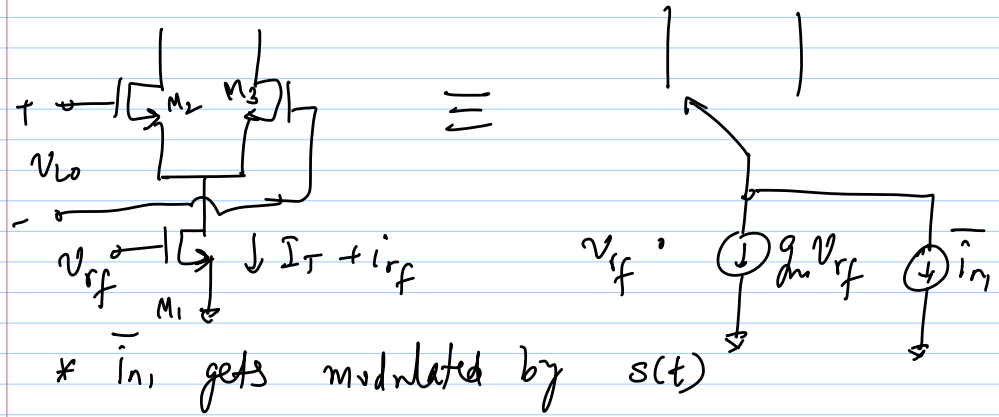 + M₂ M₃ ≡
V_LO
-
V_rf ↓ I_T + i_rf V_rf g_m V_rf i̅_n₁
M₁
* i̅_n₁ gets modulated by s(t)